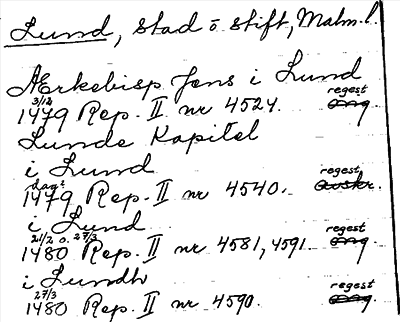 Lund, Stad o Stift, Malm. l.
Ærkebisp Jens i Lund
3/12 regest
1479 Rep. II nr 4524. orig.
Lunde Kapitel
i Lund
dag? regest
1479 Rep. II nr 4540. avskr.
i Lund
21/2 o. 27/3 regest
1480 Rep. II nr 4581, 4591 orig.
i Lundh
27/3 regest
1480 Rep. II nr 4590. orig.